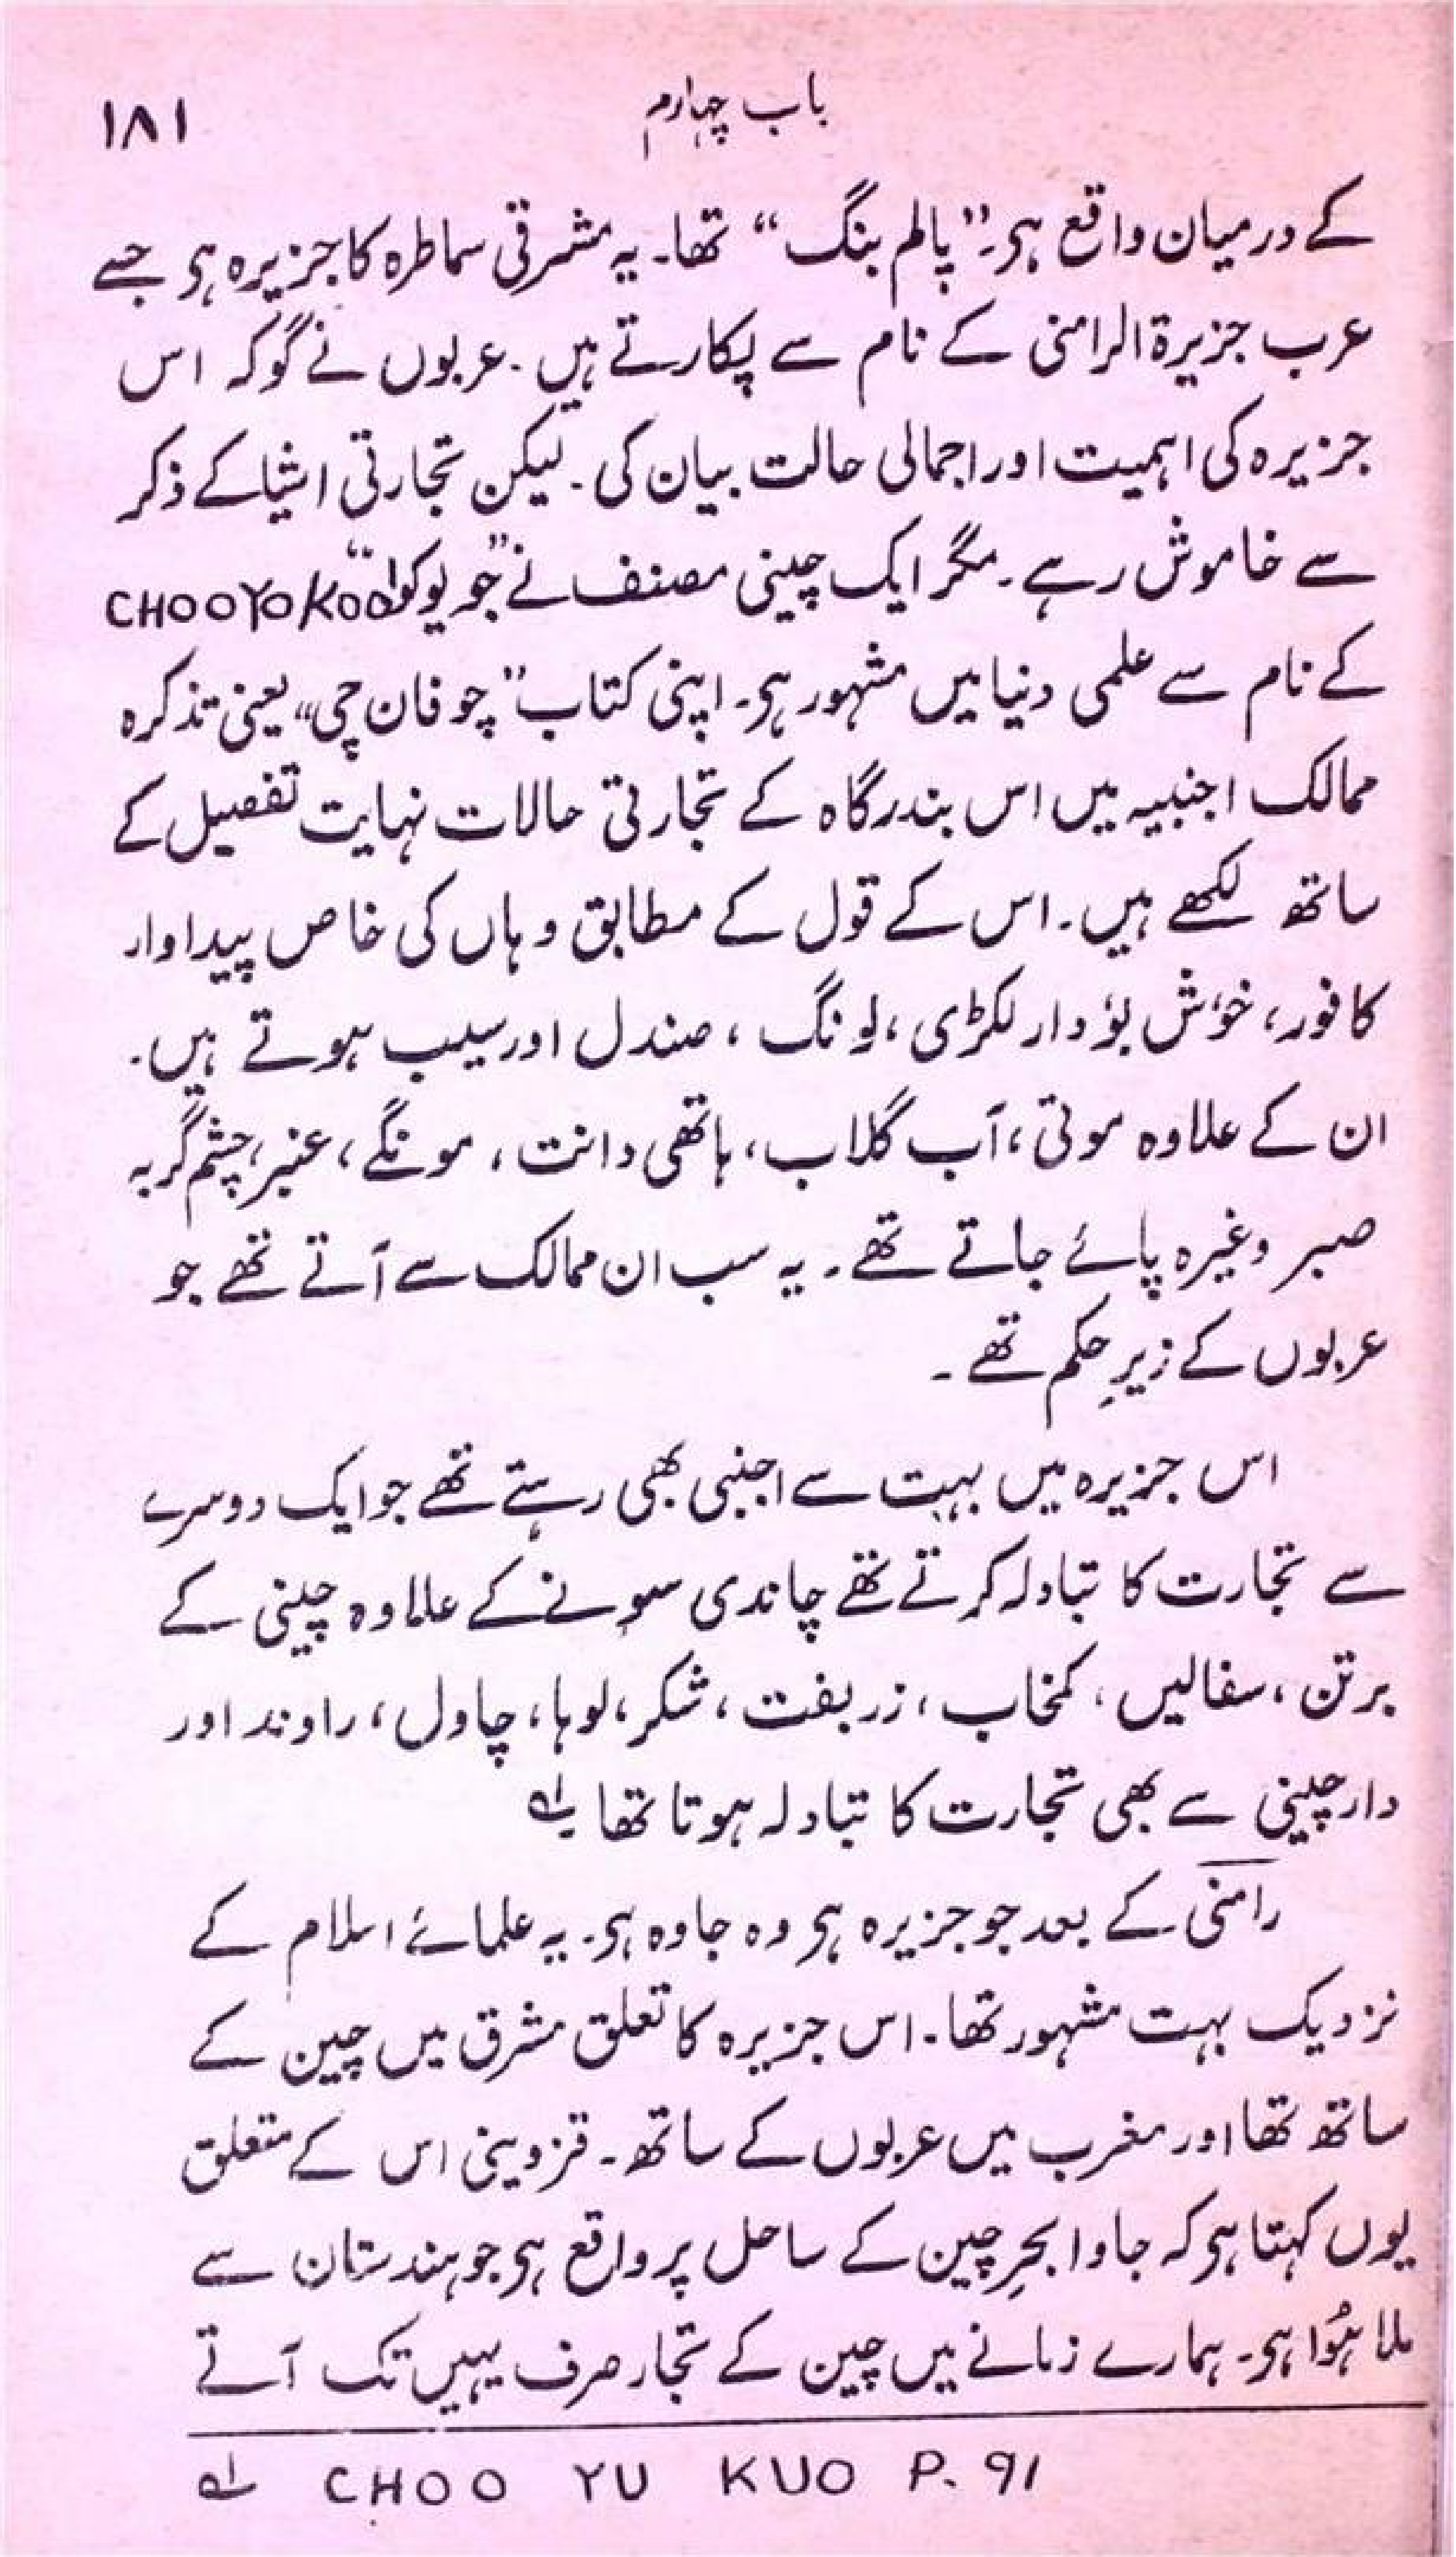 باب چہارم ۱۸۱
کے درمیان واقع ہی۔ "پالم بنگ" تھا۔ یہ مشرقی سماطرہ کا جزیرہ ہی جسے
عرب جزیرۃ الرامنی کے نام سے پکارتے ہیں۔ عربوں نے گو کہ اس
جزیرہ کی اہمیت اور اجمالی حالت بیان کی۔ لیکن تجارتی اشیا کے ذکر
سے خاموش رہے۔ مگر ایک چینی مصنف نے "جو یوکوا" CHOOYOKOO
کے نام سے علمی دنیا میں مشہور ہی۔ اپنی کتاب "چو فان چی" یعنی تذکرہ
ممالک اجنبیہ میں اس بندرگاہ کے تجارتی حالات نہایت تفصیل کے
ساتھ لکھے ہیں۔ اس کے قول کے مطابق وہاں کی خاص پیداوار
کافور، خوٗش بوٗ دار لکڑی، لونگ، صندل اور سیب ہوتے ہیں۔
ان کے علاوہ موتی، آب گلاب، ہاتھی دانت، مونگے، عنبر، چشم گربہ
صبر وغیرہ پائے جاتے تھے۔ یہ سب ان ممالک سے آتے تھے جو
عربوں کے زیرِ حکم تھے۔
اس جزیرہ میں بہت سے اجنبی بھی رہتے تھے جو ایک دوسرے
سے تجارت کا تبادلہ کرتے تھے چاندی سونے کے علاوہ چینی کے
برتن، سفالیں، کمخاب، زربفت، شکر، لوہا، چاول، راوند اور
دارچینی سے بھی تجارت کا تبادلہ ہوتا تھا۔ لہ
رامنی کے بعد جو جزیرہ ہی وہ جاوہ ہی۔ یہ علمائے اسلام کے
نزدیک بہت مشہور تھا۔ اس جزیرہ کا تعلق مشرق میں چین کے
ساتھ تھا اور مغرب میں عربوں کے ساتھ۔ قزوینی اس کے متعلق
یوں کہتا ہی کہ جاوا بحرِ چین کے ساحل پر واقع ہی جو ہندستان سے
ملا ہُوا ہی۔ ہمارے زمانے میں چین کے تجار صرف یہیں تک آتے
لہ CHOO YU KUO P. 91